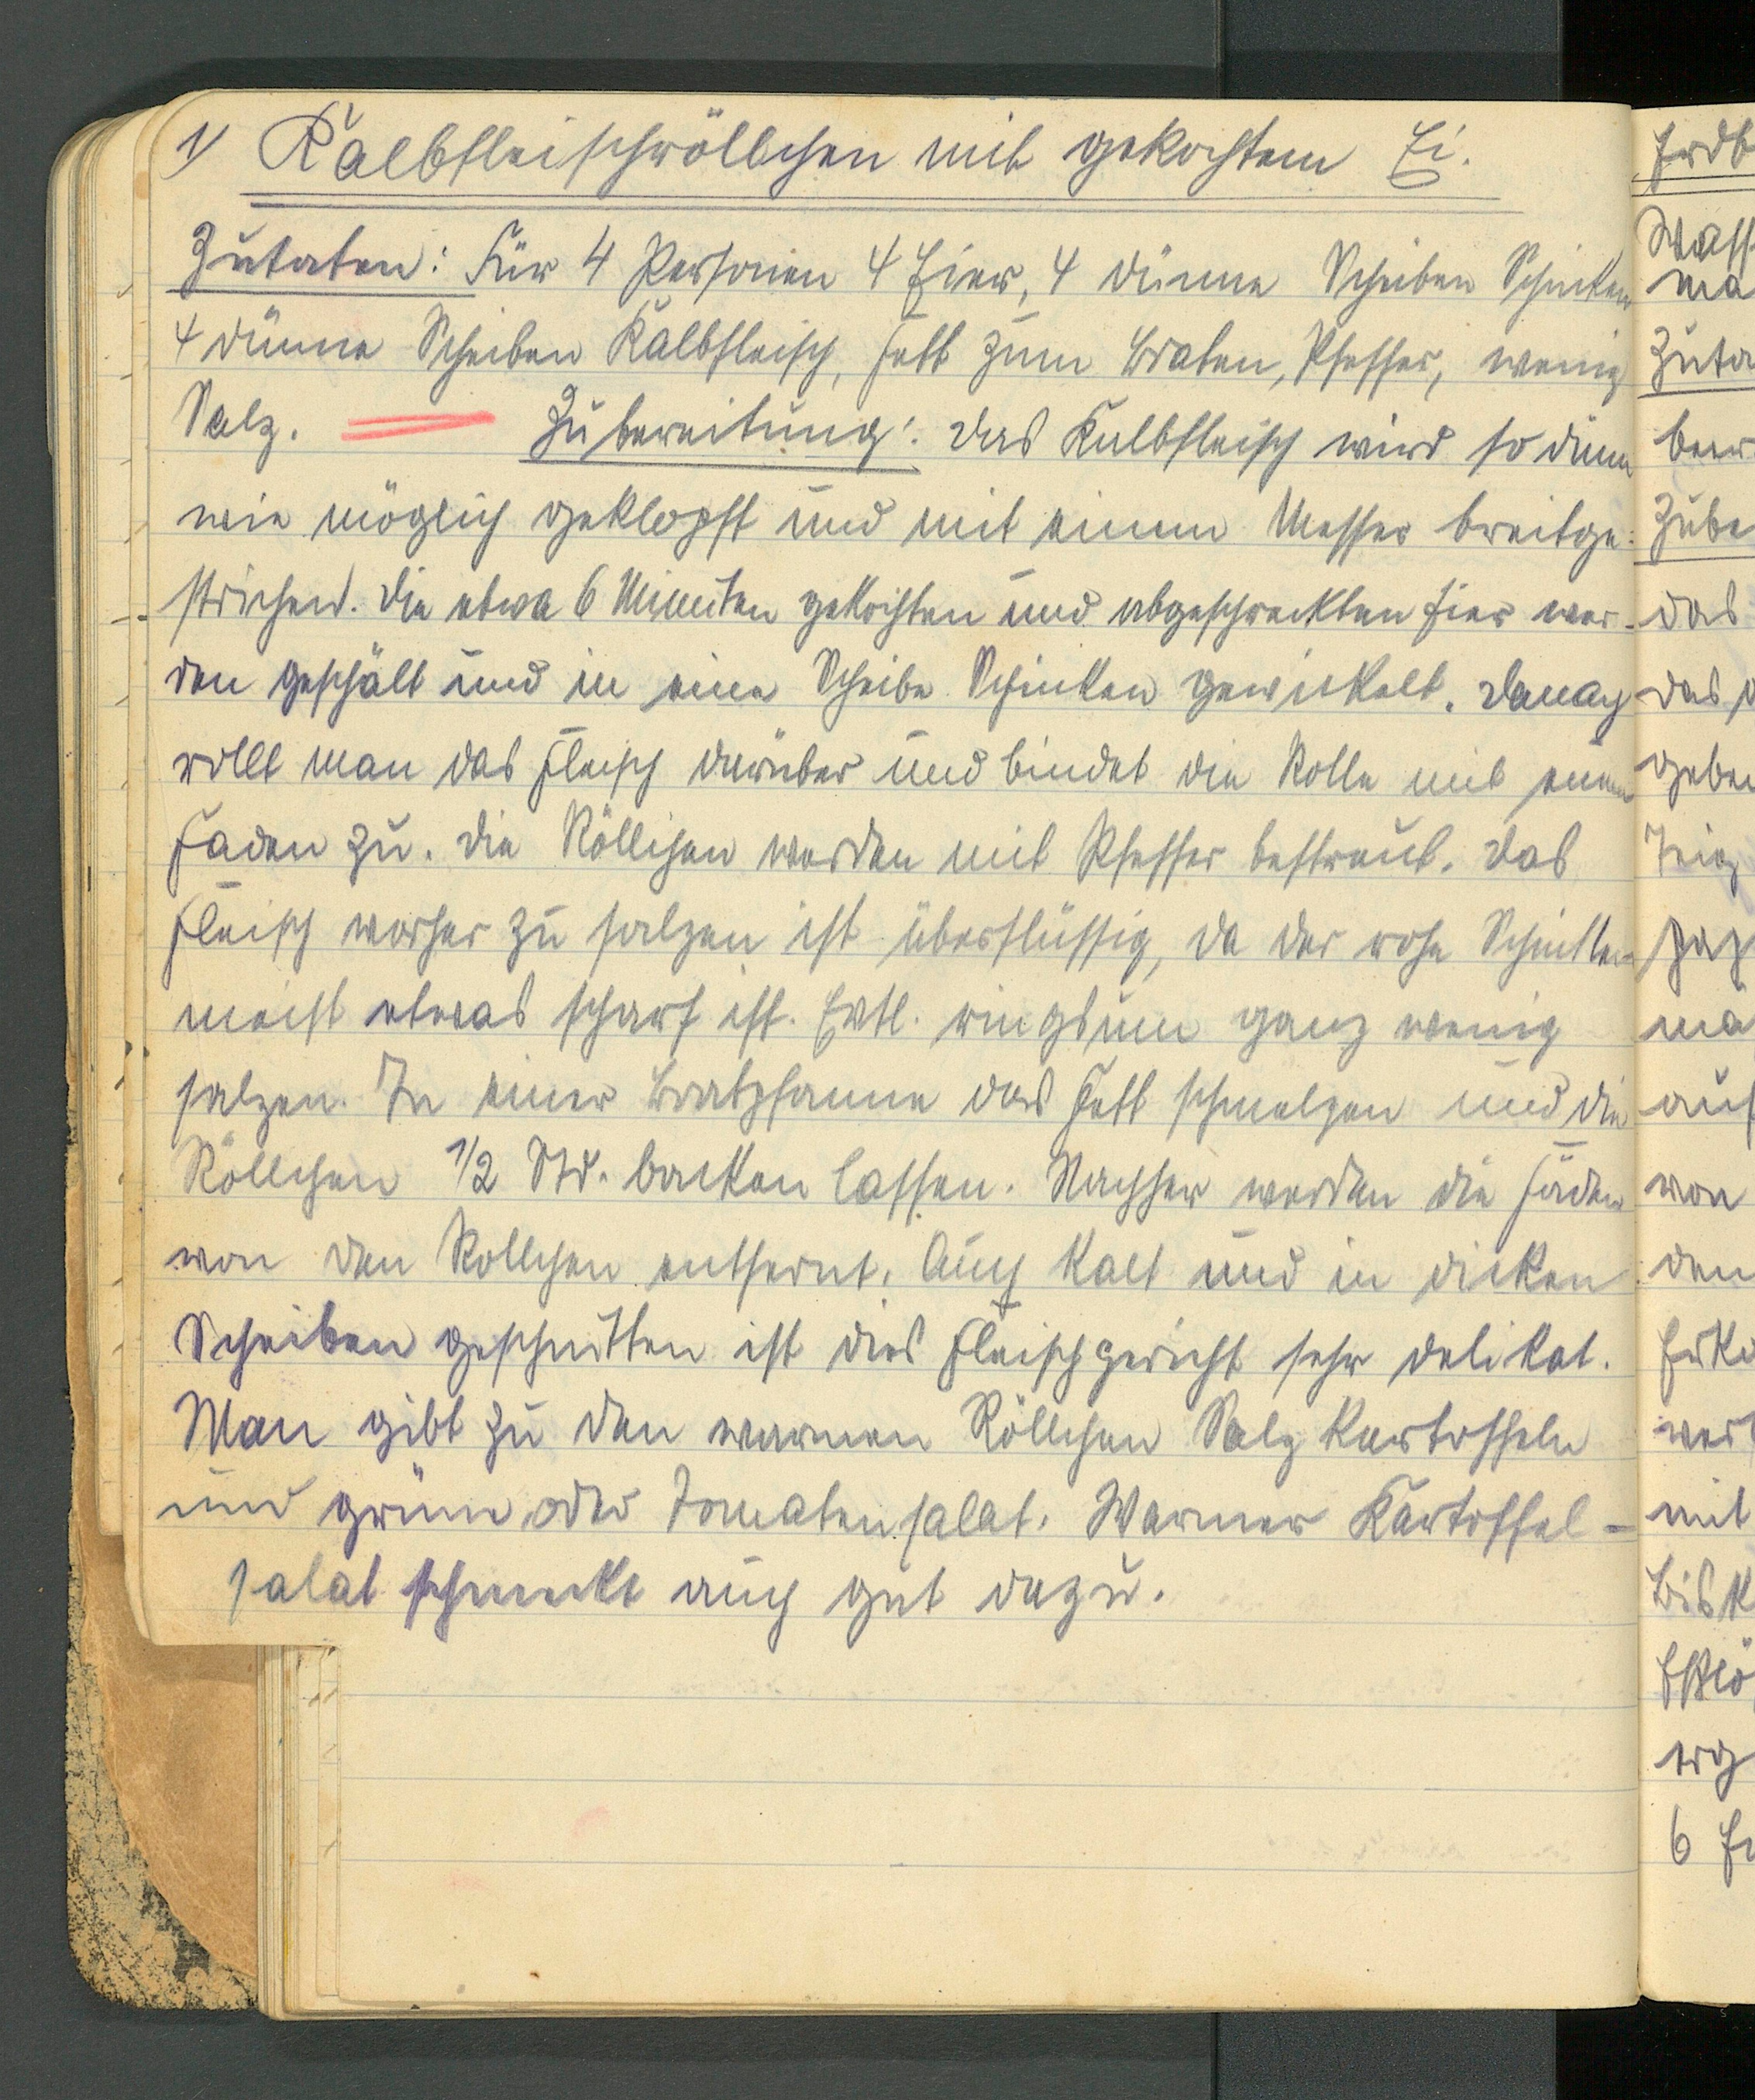 1) Kalbfleischröllchen mit gekochtem Ei.
Zutaten: Für 4 Personen 4 Eier, 4 dünne Scheiben Schinken
4 dünne Scheiben Kalbfleisch, Fett zum Braten, Pfeffer, wenig
Salz. Zubereitung: Das Kalbfleisch wird so dünn
wie möglich geklopft und mit einem Messer breitge-
strichen. Die etwa 6 Minuten gekochten und abgeschreckten Eier wer-
den geschält und in eine Scheibe Schinken gewickelt. Danach
rollt man das Fleisch darüber und bindet die Rolle mit einem
Faden zu. Die Röllchen werden mit Pfeffer bestreut. Das
Fleisch vorher zu salzen ist überflüssig, da der rohe Schinken
meist etwas scharf ist. Evtl. ringsum ganz wenig
salzen. In einer Bratpfanne das Fett schmelzen und die
Röllchen 1/2 Std. backen lassen. Nachher werden die Fäden
von den Rollchen entfernt. Auch kalt und in dicken
Scheiben geschnitten ist dies Fleischgericht sehr delikat.
Man gibt zu den warmen Röllchen Salzkartoffeln
und grün oder Tomatensalat. Warmer Kartoffel-
salat schmeckt auch gut dazu.
Erdb
Wass
ma
Zuta
beer
Zube
das
das
geben
Teig
ma
auf
von
den
wer
mit
Bisk
6